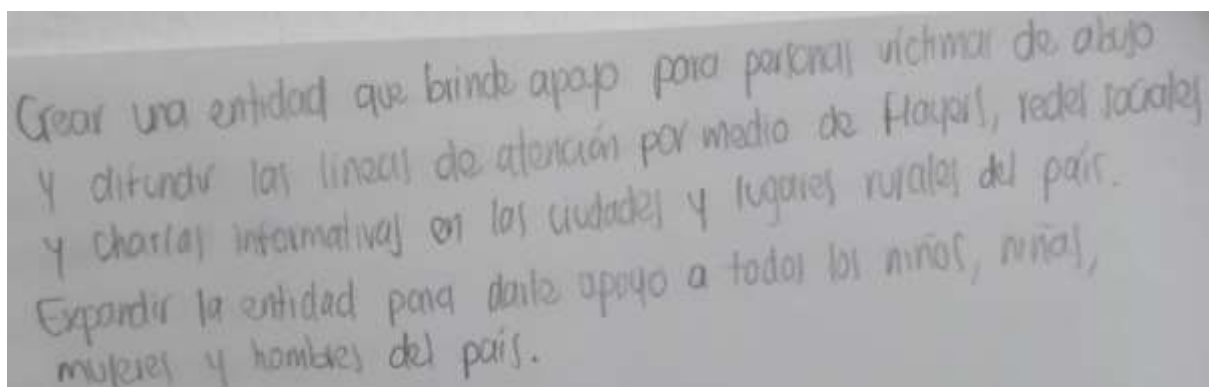 Crear una entidad que brinde apoyo para personas víctimas de abuso
y difundir las lineas de atención por medio de Flayers, redes sociales
y charlas informativas en las ciudades y lugares rurales del país.
Expandir la entidad para darle apoyo a todos los niños, niñas,
mujeres y hombres del país.